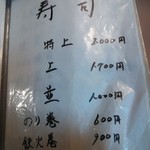 寿司
特上 2.000円
上 1.700円
並 1.000円
のり巻 600円
鉄火巻 900円